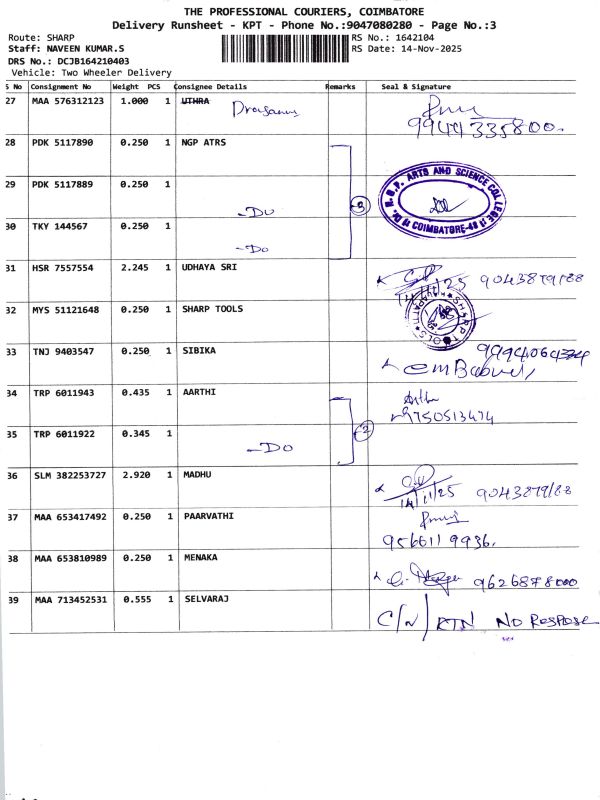 THE PROFESSIONAL COURIERS, COIMBATORE
Delivery Runsheet - KPT - Phone No.:9047080280 - Page No.:3
Route: SHARP RS No.: 1642104
Staff: NAVEEN KUMAR.S RS Date: 14-Nov-2025
DRS No.: DCJB164210403
Vehicle: Two Wheeler Delivery
S No Consignment No Weight PCS Consignee Details Remarks Seal & Signature
27 MAA 576312123 1.000 1 UTHRA
9944335800.
28 PDK 5117890 0.250 1 NGP ATRS
29 PDK 5117889 0.250 1
-DO 3
Dr. N.G.P. ARTS AND SCIENCE COLLEGE
COIMBATORE-48
30 TKY 144567 0.250 1
-DO
31 HSR 7557554 2.245 1 UDHAYA SRI
14/11/25 9043879188
32 MYS 51121648 0.250 1 SHARP TOOLS
SHARP TOOLS
33 TNJ 9403547 0.250 1 SIBIKA
34 TRP 6011943 0.435 1 AARTHI
9750513474
35 TRP 6011922 0.345 1
-DO 2
36 SLM 382253727 2.920 1 MADHU
14/11/25 9043879188
37 MAA 653417492 0.250 1 PAARVATHI
9566119936.
38 MAA 653810989 0.250 1 MENAKA
9626878000
39 MAA 713452531 0.555 1 SELVARAJ
C/N/ RTN NO RESPOSE